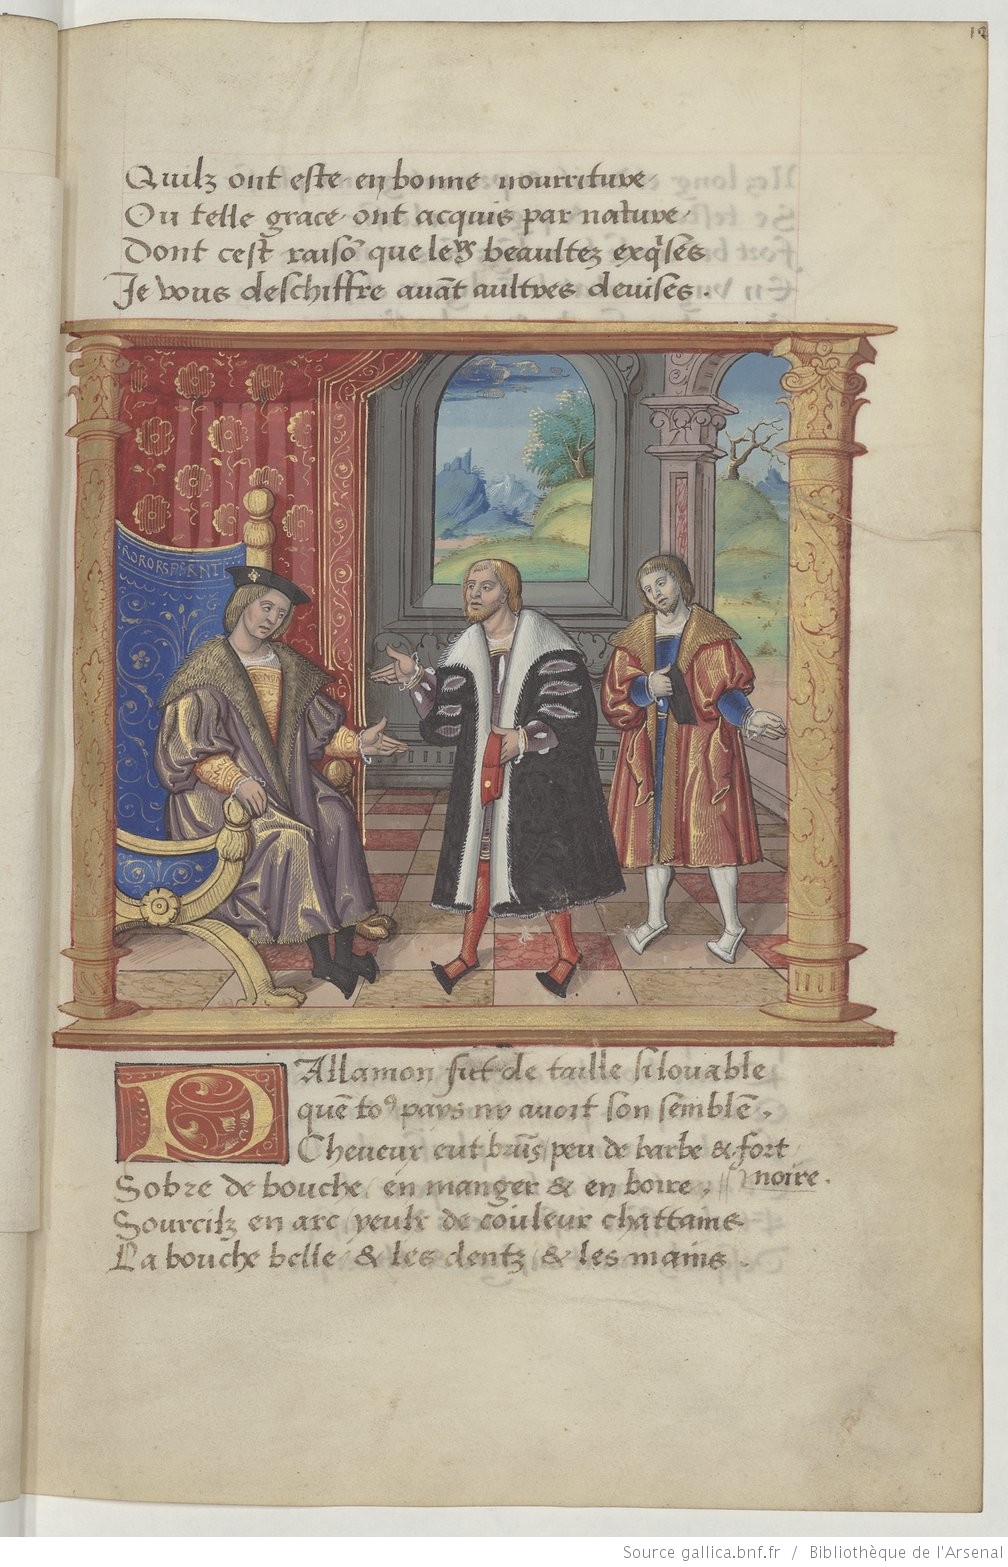 12
Quilz ont este en bonne nourriture
Ou telle grace ont acquis par nature
Dont cest raisō que leᵘʳˢ beaultez exq̄ses
Je vous deschiffre auāt aultres deuises .
RORORSPSRNT
DAllamon fut de taille si louable
quē toꝰ pays ny auoit son semblē .
Cheueux eut brūs peu de barbe & fort
noire .
Sobre de bouche en manger & en boire .
Sourcilz en arc yeulx de couleur chattains
La bouche belle & les dentz & les mains .
Source gallica.bnf.fr / Bibliothèque de l'Arsenal